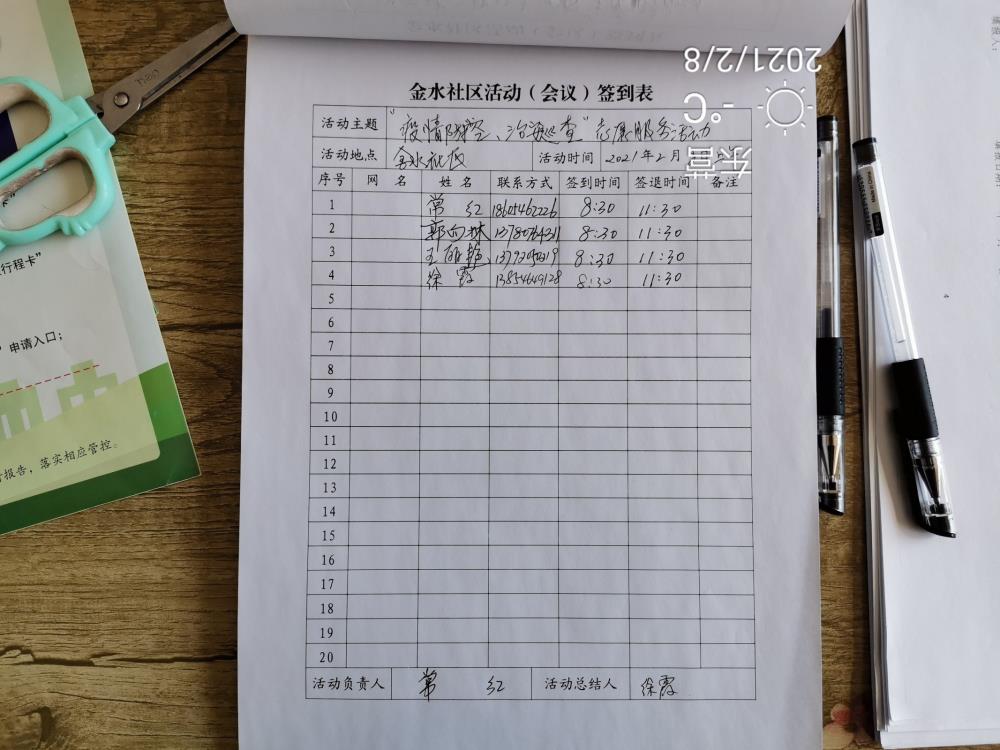 2021/2/8
°C
东营
金水社区活动（会议）签到表
活动主题 "疫情防控、治安巡查"志愿服务活动
活动地点 金水社区 活动时间 2021年2月
序号 网 名 姓 名 联系方式 签到时间 签退时间 备注
1 常 红 18605462226 8:30 11:30
2 8:30 11:30
3 8:30 11:30
4 徐 霞 13854649128 8:30 11:30
5
6
7
8
9
10
11
12
13
14
15
16
17
18
19
20
活动负责人 常 红 活动总结人 徐霞
行程卡"
申请入口；
报告，落实相应管控。